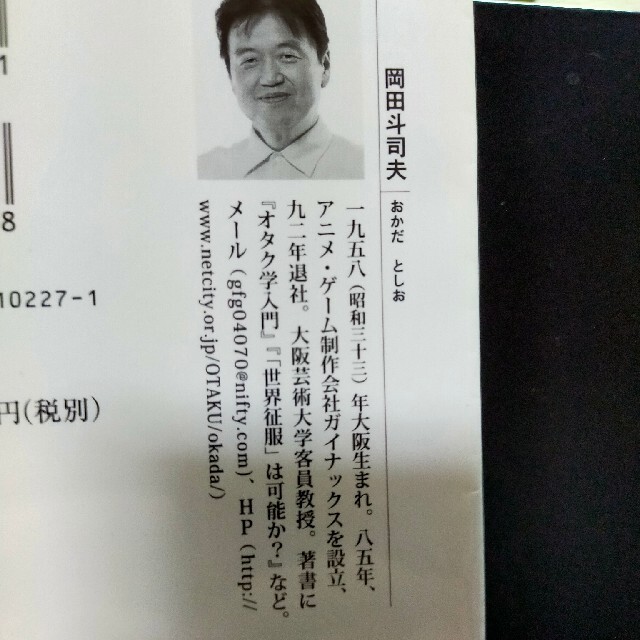 岡田斗司夫
おかだ としお
一九五八（昭和三十三）年大阪生まれ。八五年、
アニメ・ゲーム制作会社ガイナックスを設立、
九二年退社。大阪芸術大学客員教授。著書に
『オタク学入門』『「世界征服」は可能か？』など。
メール（gfg04070@nifty.com）、HP（http://
www.netcity.or.jp/OTAKU/okada/）
1
8
10227-1
円(税別)